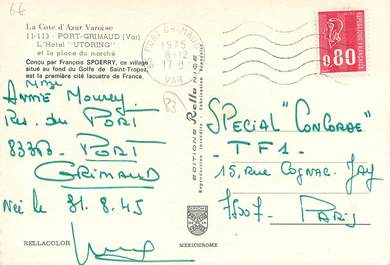 6€
La Cote d'Azur Varoise
11-113 - PORT-GRIMAUD (Var)
L'Hôtel "UTORING"
et la place du marché
Conçu par François SPOERRY, ce village,
situé au fond du Golfe de Saint-Tropez,
est la première cité lacustre de France.
PORT GRIMAUD
1975
8-12
17 H
VAR
0,80
Mme
Annie
Res. du PORT
83360 PORT
GRIMAUD
Née le 31.8.45
83
SPECIAL "CONCORDE"
- TF1 -
15, RUE COGNAC-JAY
75007 - PARIS
EDITIONS Rella NICE
Reproduction interdite - Fabrication
RELLACOLOR
MEXICHROME